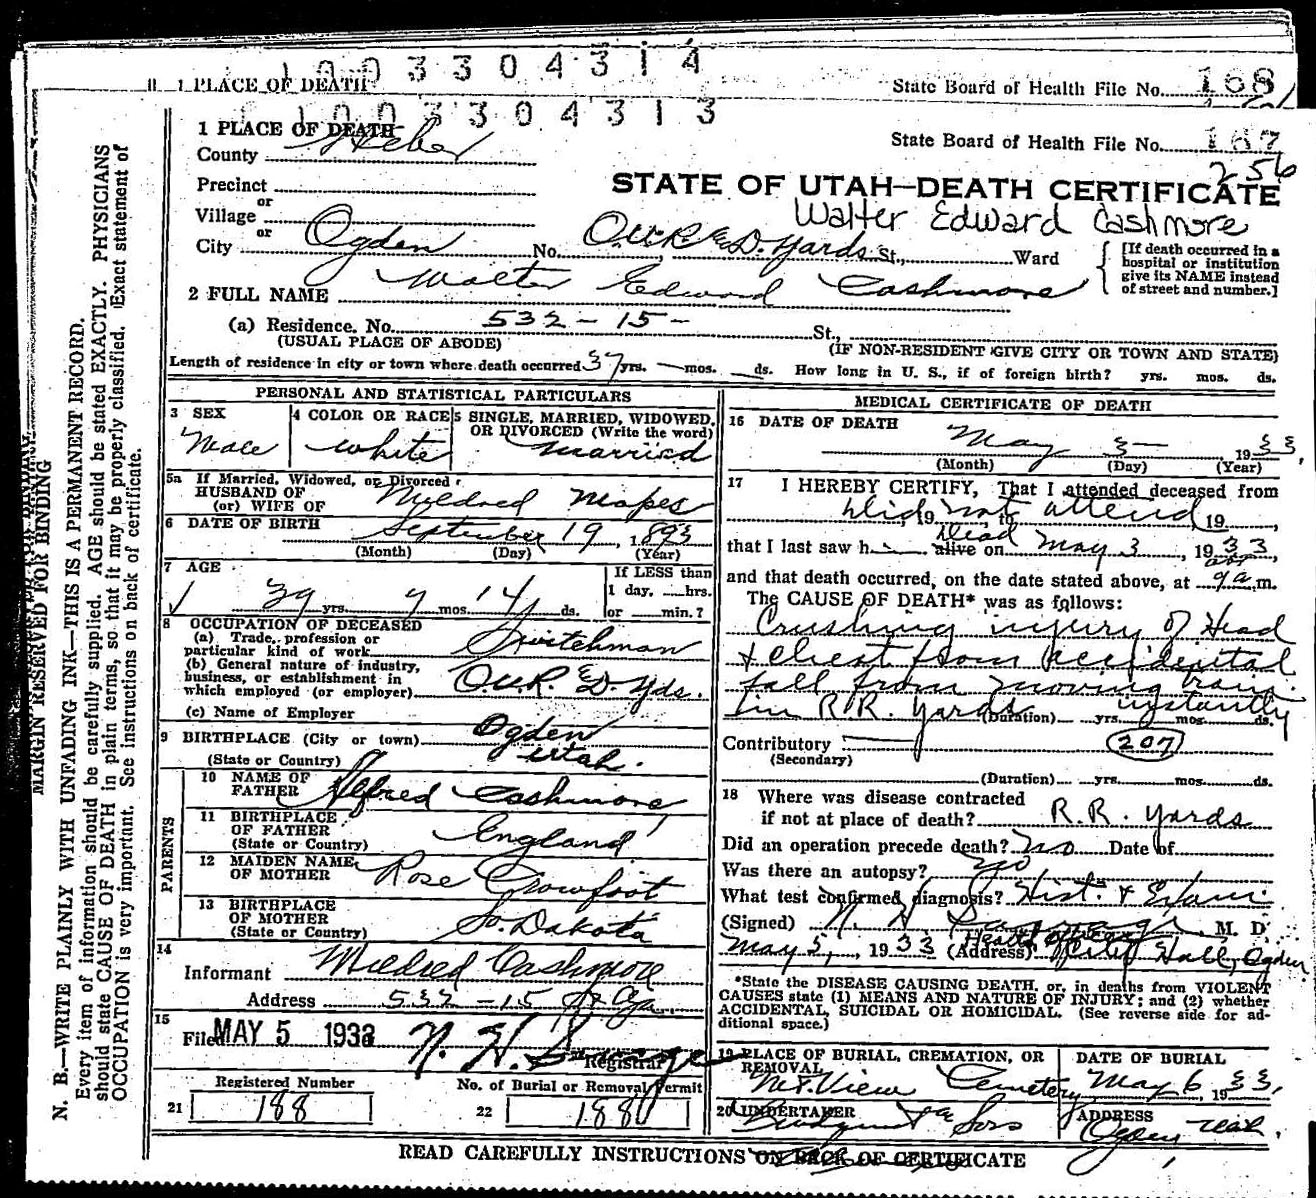 1003304314
1 PLACE OF DEATH State Board of Health File No. 168
1003304313
1 PLACE OF DEATH State Board of Health File No. 167
County Weber 256
Precinct STATE OF UTAH—DEATH CERTIFICATE
or
Village Walter Edward Cashmore
or
City Ogden No. O.U.R. & D. Yards St., Ward [If death occurred in a hospital or institution give its NAME instead of street and number.]
2 FULL NAME Walter Edward Cashmore
(a) Residence. No. 532 - 15 - St.,
(USUAL PLACE OF ABODE) (IF NON-RESIDENT GIVE CITY OR TOWN AND STATE)
Length of residence in city or town where death occurred 37 yrs. — mos. ds. How long in U. S., if of foreign birth? yrs. mos. ds.
PERSONAL AND STATISTICAL PARTICULARS
3 SEX 4 COLOR OR RACE 5 SINGLE, MARRIED, WIDOWED, OR DIVORCED (Write the word)
Male White Married
5a If Married, Widowed, or Divorced
HUSBAND OF
(or) WIFE OF Mildred Mapes
6 DATE OF BIRTH September 19, 1893
(Month) (Day) (Year)
7 AGE If LESS than
1 day, hrs.
39 yrs. 7 mos. 14 ds. or min.?
8 OCCUPATION OF DECEASED
(a) Trade, profession or
particular kind of work Switchman
(b) General nature of industry,
business, or establishment in
which employed (or employer) O.U.R. & D. Yds.
(c) Name of Employer
9 BIRTHPLACE (City or town) Ogden
(State or Country) Utah.
PARENTS
10 NAME OF
FATHER Alfred Cashmore
11 BIRTHPLACE
OF FATHER England
(State or Country)
12 MAIDEN NAME
OF MOTHER Rose Crowfoot
13 BIRTHPLACE
OF MOTHER So. Dakota
(State or Country)
14
Informant Mildred Cashmore
Address 532 - 15
15
Filed MAY 5 1933 N. H. Savage
Registrar
Registered Number No. of Burial or Removal Permit
21 188 22 1880
MEDICAL CERTIFICATE OF DEATH
16 DATE OF DEATH
May 3 — 1933,
(Month) (Day) (Year)
17 I HEREBY CERTIFY, That I attended deceased from
Did not attend, 19 , to , 19 ,
that I last saw h dead alive on May 3, 1933,
and that death occurred, on the date stated above, at abt 9 a.m.
The CAUSE OF DEATH* was as follows:
Crushing injury of Head
+ Chest from accidental
fall from moving train
in R.R. Yards instantly
(Duration) yrs. mos. ds.
Contributory 207
(Secondary)
(Duration) yrs. mos. ds.
18 Where was disease contracted
if not at place of death? R.R. Yards
Did an operation precede death? No Date of
Was there an autopsy? No
What test confirmed diagnosis? Hist. + Exam
(Signed) N. H. Savage, M. D.
May 5, 1933 (Address) Health Officer City Hall, Ogden
*State the DISEASE CAUSING DEATH, or, in deaths from VIOLENT
CAUSES state (1) MEANS AND NATURE OF INJURY; and (2) whether
ACCIDENTAL, SUICIDAL OR HOMICIDAL. (See reverse side for ad-
ditional space.)
19 PLACE OF BURIAL, CREMATION, OR DATE OF BURIAL
REMOVAL
Mt. View Cemetery May 6 1933,
20 UNDERTAKER ADDRESS
& Sons Ogden Utah.
READ CAREFULLY INSTRUCTIONS ON BACK OF CERTIFICATE
MARGIN RESERVED FOR BINDING
N. B.—WRITE PLAINLY WITH UNFADING INK—THIS IS A PERMANENT RECORD.
Every item of information should be carefully supplied. AGE should be stated EXACTLY. PHYSICIANS
should state CAUSE OF DEATH in plain terms, so that it may be properly classified. Exact statement of
OCCUPATION is very important. See instructions on back of certificate.